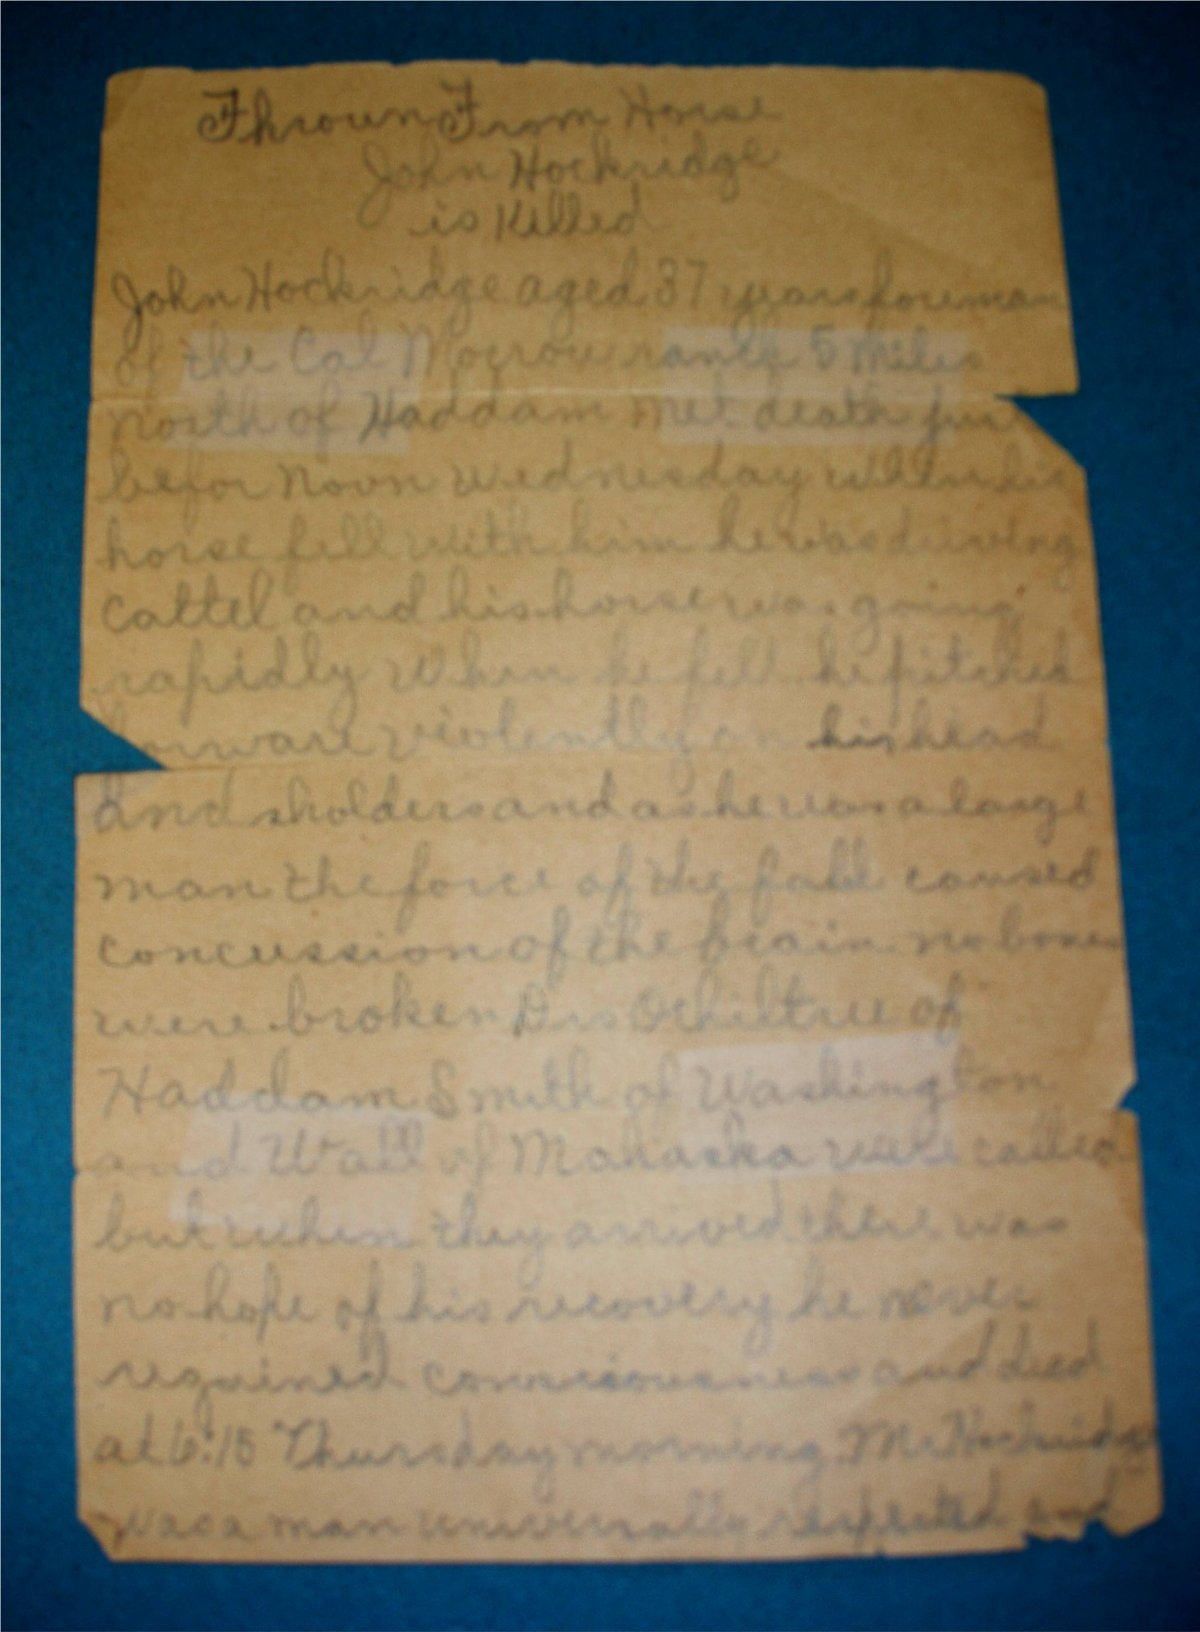 Thrown From Horse
John Hockridge
is Killed
John Hockridge aged 37 years foreman
of the Cal Morrow ranle 5 miles
north of Haddam met death jus
befor Noon Wednesday when his
horse fell with him he was driving
Cattel and his horse was going
rapidly When he fell he pitched
forware violently on his head
and sholders and as he was a large
man the force of the fall caused
concussion of the brain no bones
were broken Drs Ochiltree of
Haddam Smith of Washington
and Wall of Mahaska were called
but when they arrived there was
no hope of his recovery he never
regained consciousness and died
at 6:15 Thursday morning Mr Hockridge
was a man universally respected and